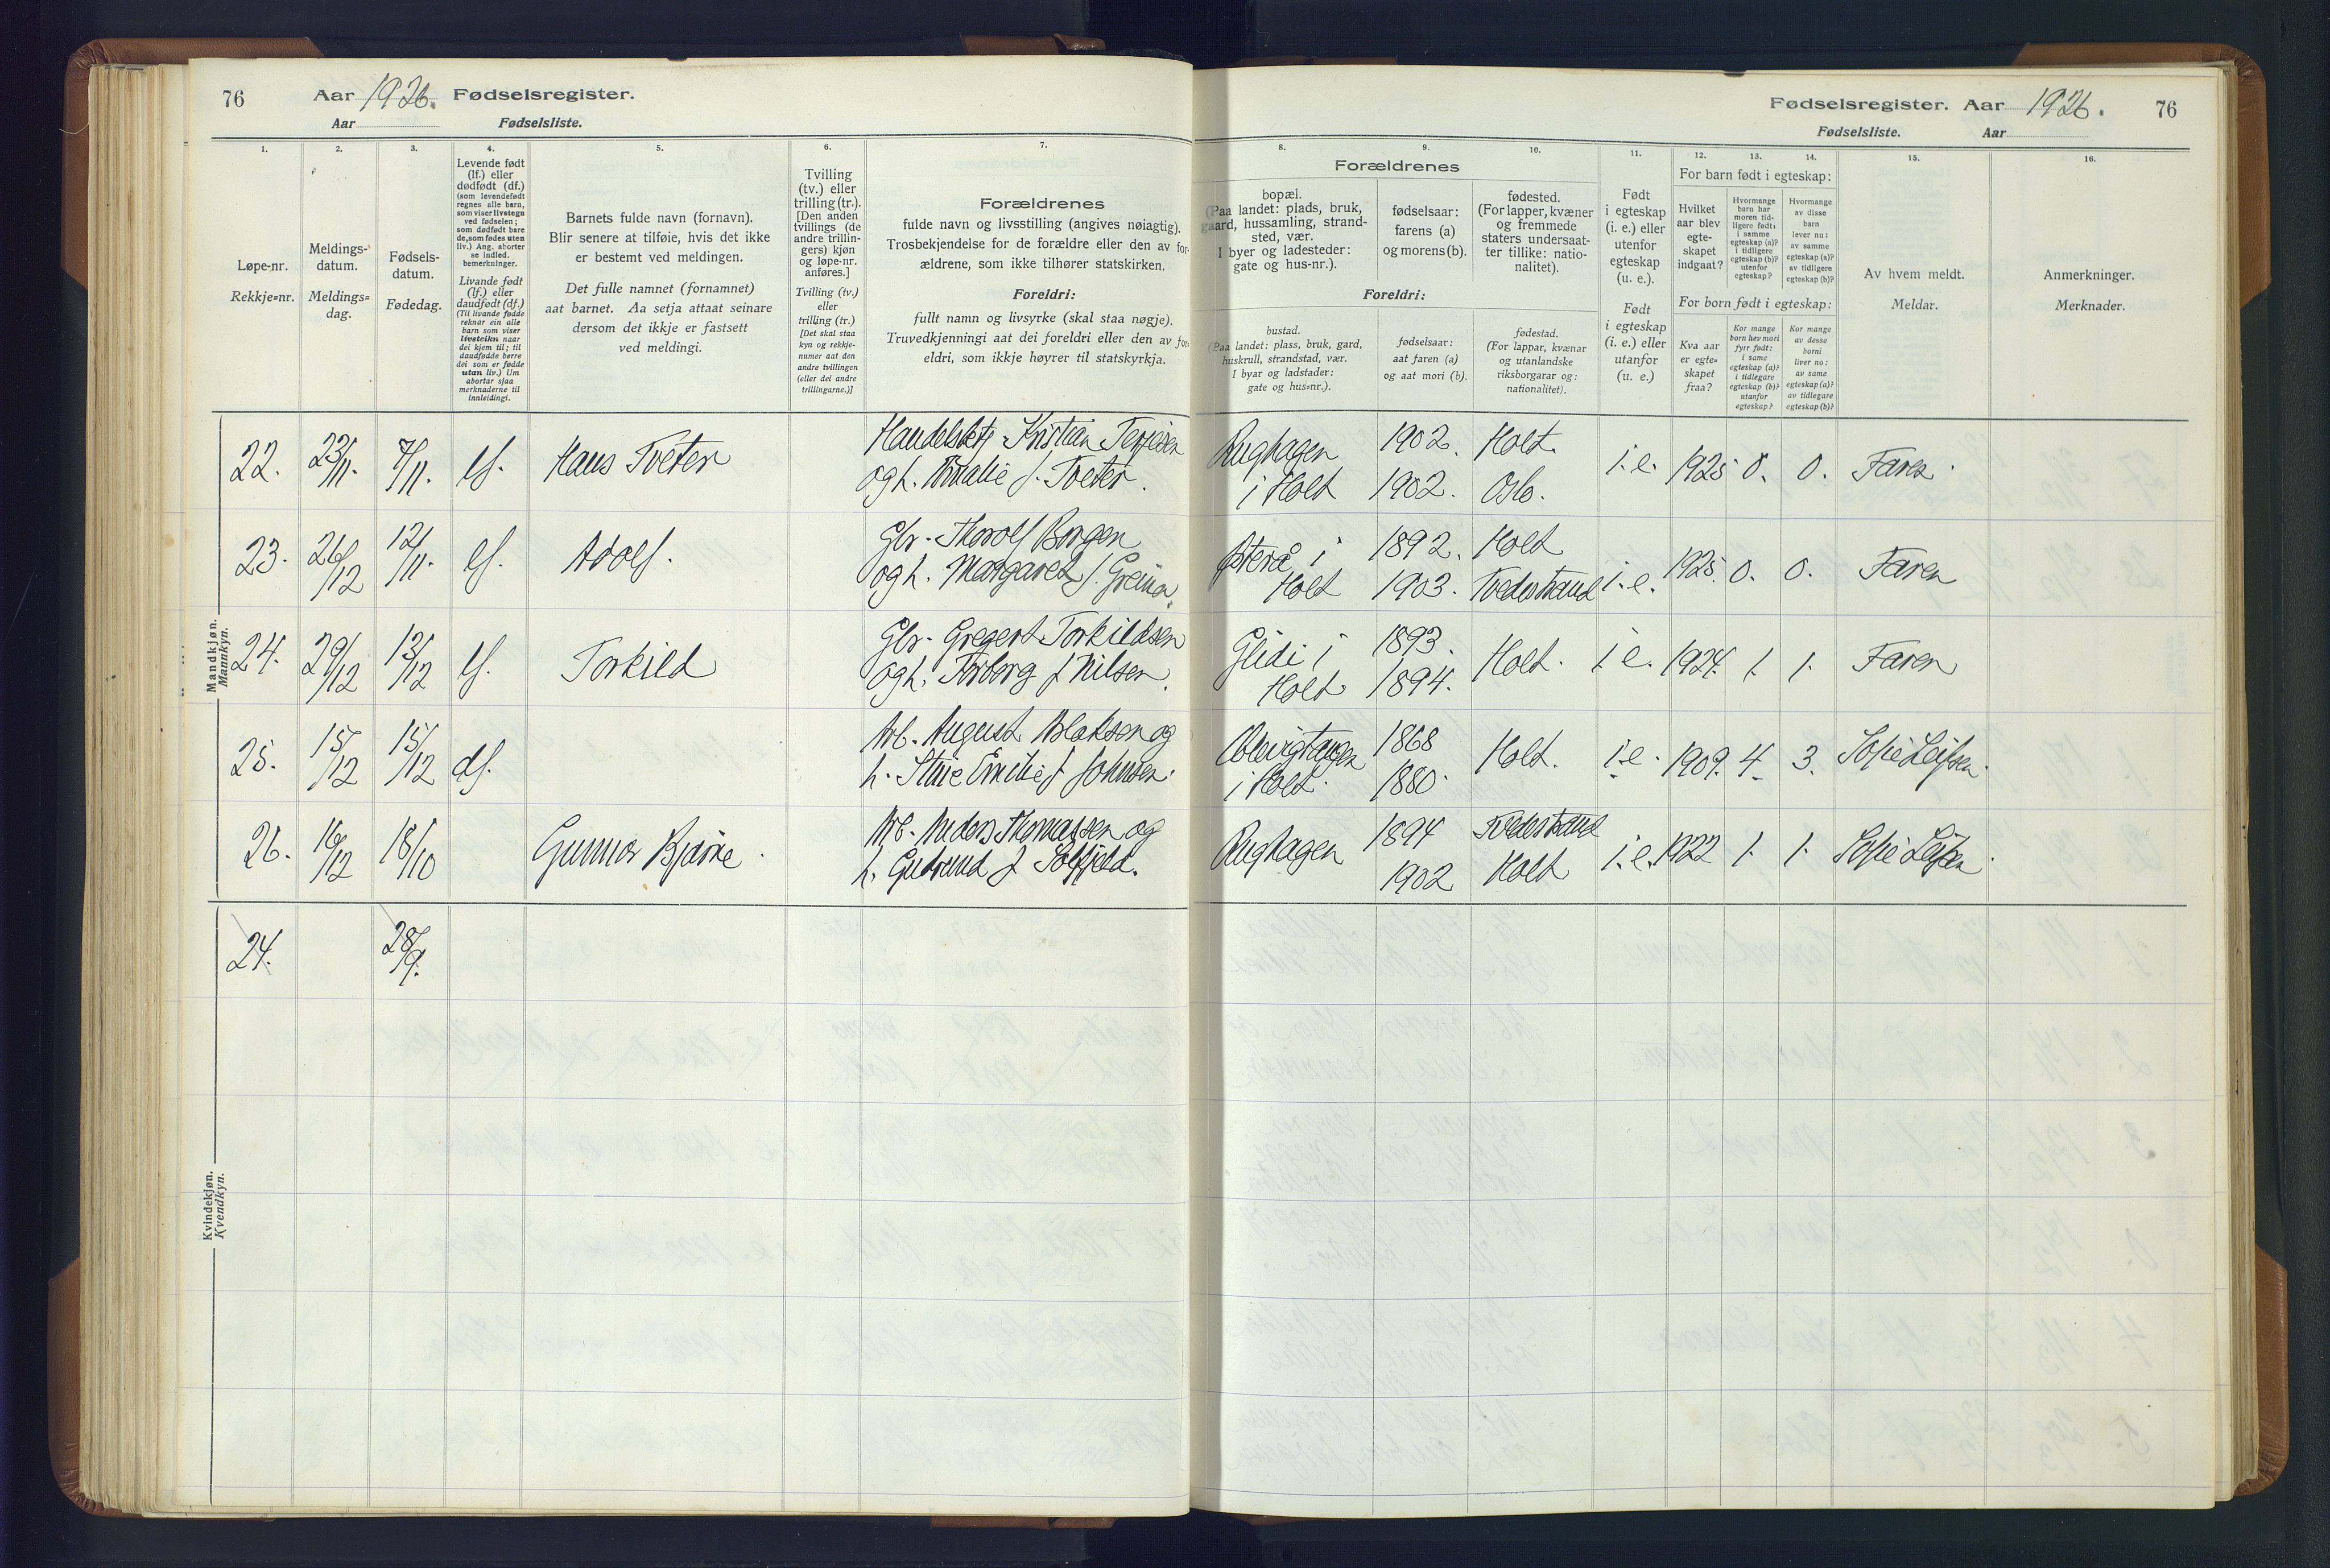 76 Aar 1926. Fødselsregister.
Aar Fødselsliste.
Fødselsregister. Aar 1926. 76
Fødselsliste. Aar
1. 2. 3. 4. 5. 6. 7.
Løpe-nr.
Rekkje=nr.
Meldings-
datum.
Meldings=
dag.
Fødsels-
datum.
Fødedag.
Levende født
(lf.) eller
dødfødt (df.)
(som levendefødt
regnes alle barn,
som viser livstegn
ved fødselen;
som dødfødt bare
de, som fødes uten
liv.) Ang. aborter
se indled.
bemerkninger.
Livande født
(lf.) eller
daudfødt (df.)
(Til livande fødde
reknar ein alle
barn som viser
livsteikn naar
dei kjem til; til
daudfødde berre
dei som er fødde
utan liv.) Um
abortar sjaa
merknaderne til
innleidingi.
Barnets fulde navn (fornavn).
Blir senere at tilføie, hvis det ikke
er bestemt ved meldingen.
Det fulle namnet (fornamnet)
aat barnet. Aa setja attaat seinare
dersom det ikkje er fastsett
ved meldingi.
Tvilling
(tv.) eller
trilling (tr.).
[Den anden
tvillings (de
andre trillin-
gers) kjøn
og løpe-nr.
anføres.]
Tvilling (tv.)
eller
trilling (tr.)
[Det skal staa
kyn og rekkje-
numer aat den
andre tvillingen
(eller dei andre
trillingarne.)]
Forældrenes
fulde navn og livsstilling (angives nøiagtig).
Trosbekjendelse for de forældre eller den av for-
ældrene, som ikke tilhører statskirken.
Foreldri:
fullt namn og livsyrke (skal staa nøgje).
Truvedkjenningi aat dei foreldri eller den av for-
eldri, som ikkje høyrer til statskyrkja.
8. 9. 10. 11. 12. 13. 14. 15. 16.
Forældrenes
bopæl.
(Paa landet: plads, bruk,
gaard, hussamling, strand-
sted, vær.
I byer og ladesteder:
gate og hus-nr.).
fødselsaar:
farens (a)
og morens (b).
fødested.
(For lapper, kvæner
og fremmede
staters undersaat-
ter tillike: natio-
nalitet).
Foreldri:
bustad.
(Paa landet: plass, bruk, gard,
huskrull, strandstad, vær.
I byar og ladstader:
gate og hus=nr.).
fødselsaar:
aat faren (a)
og aat mori (b).
fødestad.
(For lappar, kvænar
og utanlandske
riksborgarar og:
nationalitet).
Født
i egteskap
(i. e.) eller
utenfor
egteskap
(u. e.).
Født
i egteskap
(i. e.) eller
utanfor
egteskap
(u. e.)
For barn født i egteskap:
Hvilket
aar blev
egte-
skapet
indgaat?
Hvormange
barn har
moren tid-
ligere født:
i samme
egteskap (a)?
i tidligere
egteskap (b)?
utenfor
egteskap?
Hvormange
av disse
barn
lever nu:
av samme
egteskap (a)?
av tidligere
egteskap (b)?
For born født i egteskap:
Kva aar
er egte=
skapet
fraa?
Kor mange
born hev mori
fyrr født:
i same
egteskap (a)?
i tidlegare
egteskap (b)?
utanfor
egteskap?
Kor mange
av desse
borni
liver no:
av same
egteskap (a)?
av tidlegare
egteskap (b)?
Av hvem meldt.
Meldar.
Anmerkninger.
Merknader.
Mandkjøn.
Mannkyn.
22. 23/11. 7/11. lf. Hans Tveter Kristian Terjesen Rughagen 1902. Holt. i.e. 1925 0. 0. Faren.
og h. f. Tveter. i Holt 1902. Oslo.
23. 26/12 12/11. lf. Adolf. Gbr. Thorolf Borgen i 1892. Holt i.e. 1925. 0. 0. Faren
og h. Margaret f. Holt 1903. Tvedestrand
24. 29/12 13/12 lf. Torkild Gbr. Gregert Torkildsen Glidi i 1893. Holt. i.e. 1924. 1. 1. Faren
og h. Torborg f. Nilsen. Holt. 1894.
25. 15/12 15/12 df. Arb. August og 1868 Holt. i.e. 1909. 4. 3. Sofie Leifsen.
h. Emilie f. Johnsen. i Holt. 1880.
26. 16/12 18/10 Gunnar Bjarne. Arb. Anders Thomassen og Rughagen 1894 Tvedestrand i.e. 1922 1. 1. Sofie Leifsen.
h. Gudrund f. 1902 Holt
Kvindekjøn.
Kvendkyn.
24. 28/9.